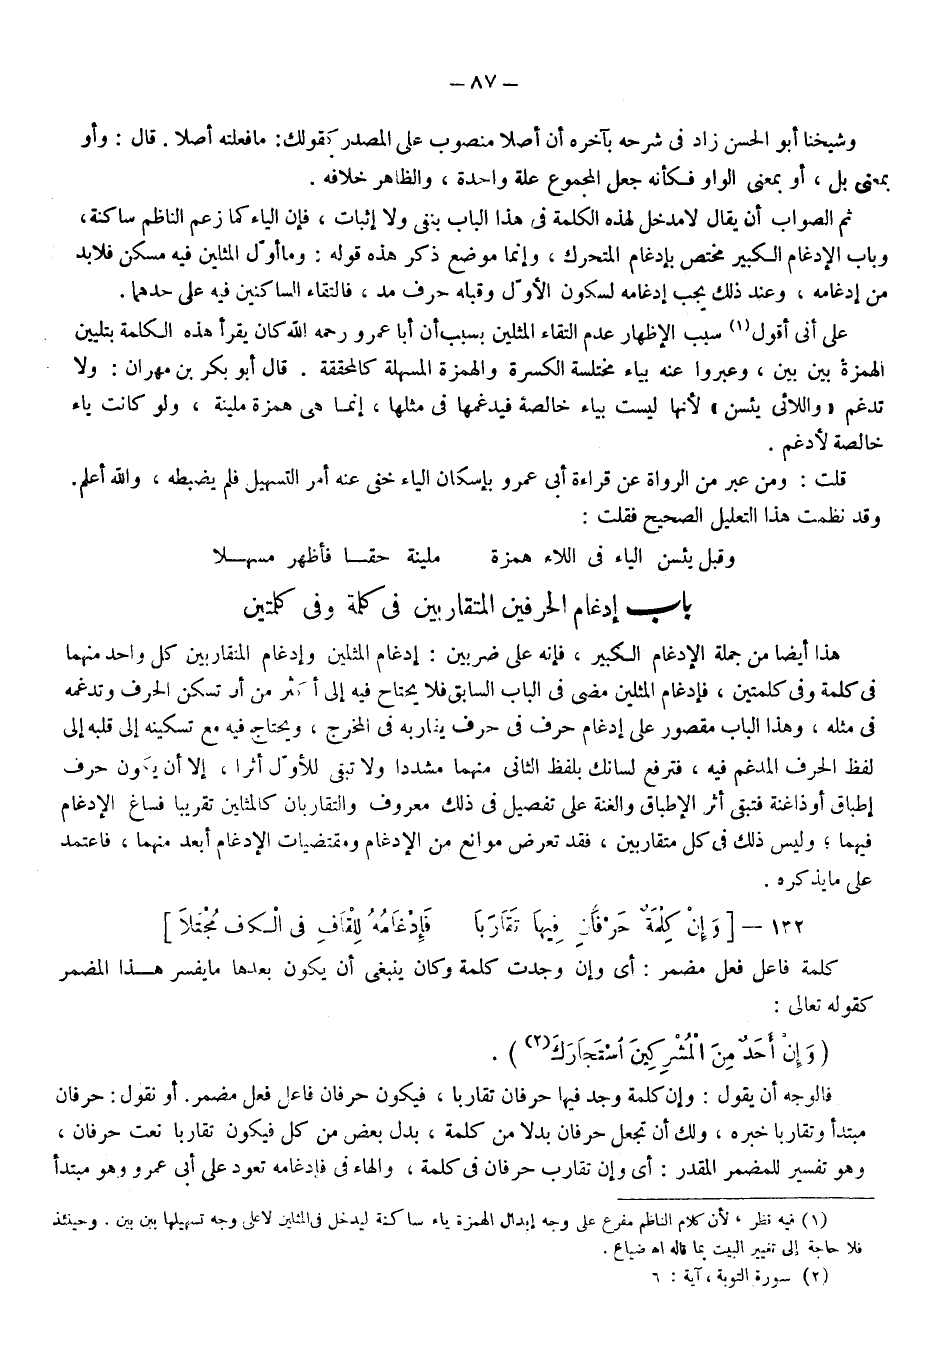 — ٨٧ —
وشيخنا أبو الحسن زاد فى شرحه بآخره أن أصلا منصوب على المصدر كقولك: مافعلته أصلا . قال : وأو
بمعنى بل ، أو بمعنى الواو فكأنه جعل المجموع علة واحدة ، والظاهر خلافه .
ثم الصواب أن يقال لامدخل لهذه الكلمة فى هذا الباب بنفى ولا إثبات ، فإن الياء كما زعم الناظم ساكنة ،
وباب الإدغام الكبير مختص بإدغام المتحرك ، وإنما موضع ذكر هذه قوله : وماأول المثلين فيه مسكن فلابد
من إدغامه ، وعند ذلك يجب إدغامه لسكون الأوّل وقبله حرف مد ، فالتقاء الساكنين فيه على حدهما .
على أنى أقول (١) سبب الإظهار عدم التقاء المثلين بسبب أن أبا عمرو رحمه الله كان يقرأ هذه الكلمة بتليين
الهمزة بين بين ، وعبروا عنه بياء مختلسة الكسرة والهمزة المسهلة كالمحققة . قال أبو بكر بن مهران : ولا
تدغم « واللائى يئسن » لأنها ليست بياء خالصة فيدغمها فى مثلها ، إنما هى همزة ملينة ، ولو كانت ياء
خالصة لأدغم .
قلت : ومن عبر من الرواة عن قراءة أبى عمرو بإسكان الياء خفى عنه أمر التسهيل فلم يضبطه ، والله أعلم.
وقد نظمت هذا التعليل الصحيح فقلت :
وقبل يئسن الياء فى اللاء همزة ملينة حقا فأظهر مسهلا
باب إدغام الحرفين المتقاربين فى كلمة وفى كلمتين
هذا أيضا من جملة الإدغام الكبير ، فإنه على ضربين : إدغام المثلين وإدغام المتقاربين كل واحد منهما
فى كلمة وفى كلمتين ، فإدغام المثلين مضى فى الباب السابق فلا يحتاج فيه إلى أكثر من أن تسكن الحرف وتدغمه
فى مثله ، وهذا الباب مقصور على إدغام حرف فى حرف يقاربه فى المخرج ، ويحتاج فيه مع تسكينه إلى قلبه إلى
لفظ الحرف المدغم فيه ، فترفع لسانك بلفظ الثانى منهما مشددا ولا تبقى للأوّل أثرا ، إلا أن يكون حرف
إطباق أوذاغنة فتبقى أثر الإطباق والغنة على تفصيل فى ذلك معروف والتقاربان كالمثلين تقريبا فساغ الإدغام
فيهما ؛ وليس ذلك فى كل متقاربين ، فقد تعرض موانع من الإدغام ومقتضيات الإدغام أبعد منهما ، فاعتمد
على مايذكره .
١٣٢ — [وَإِنْ كِلْمَةٌ حَرْفَانِ فِيهَا تَقَارَبَا فَإِدْغَامُهُ لِلْقَافِ فى الْكاف مُجْتَلاَ]
كلمة فاعل فعل مضمر : أى وإن وجدت كلمة وكان ينبغى أن يكون بعدها مايفسر هذا المضمر
كقوله تعالى :
(وَإِنْ أَحَدٌ مِنَ الْمُشْرِكِينَ اسْتَجَارَكَ (٢)) .
فالوجه أن يقول : وإن كلمة وجد فيها حرفان تقاربا ، فيكون حرفان فاعل فعل مضمر. أو نقول: حرفان
مبتدأ وتقاربا خبره ، ولك أن تجعل حرفان بدلا من كلمة ، بدل بعض من كل فيكون تقاربا نعت حرفان ،
وهو تفسير للمضمر المقدر : أى وإن تقارب حرفان فى كلمة ، والهاء فى فإدغامه تعود على أبى عمرو وهو مبتدأ
(١) فيه نظر ، لأن كلام الناظم مفرع على وجه إبدال الهمزة ياء ساكنة ليدخل فى المثلين لاعلى وجه تسهيلها بين بين . وحينئذ
فلا حاجة إلى تغيير البيت بما قاله اه ضباع .
(٢) سورة التوبة ، آية : ٦